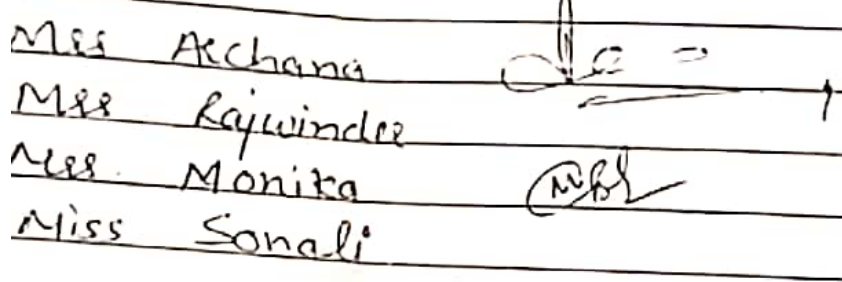 Mrs Archana
Mrs Rajwinder
Mrs. Monika
Miss Sonali